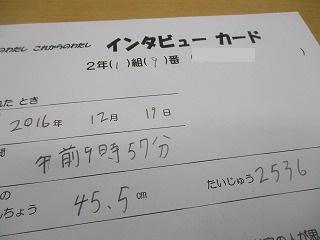 のわたし これからのわたし インタビュー カード
2年(1)組(9)番 ( )
れた とき
2016年 12月 19日
間
午前9時57分
の
んちょう 45.5cm たいじゅう2536